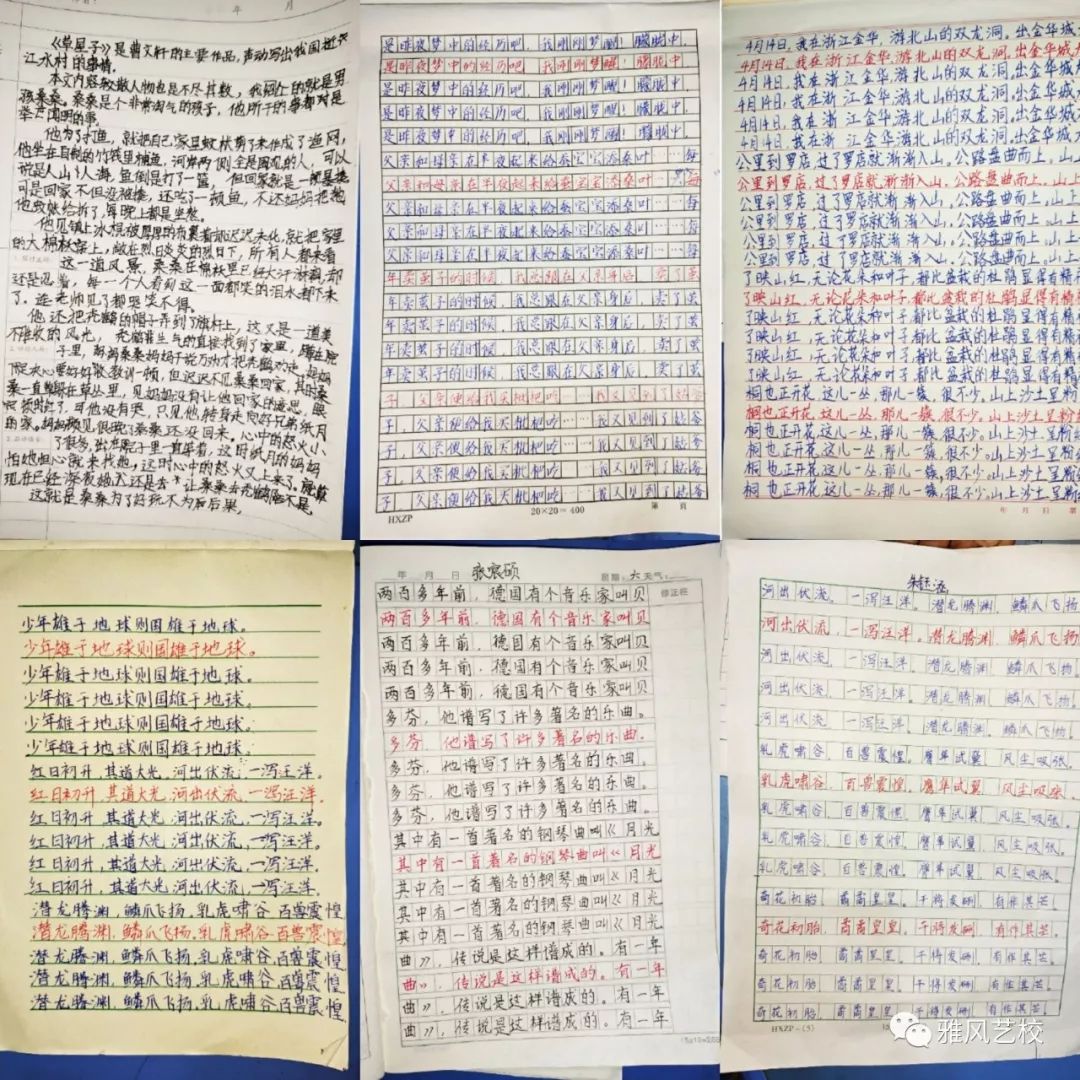 年 月
《草房子》是曹文轩的主要作品,声动写出我国
江水村的事情。
本文内容较散人物也是不尽其数,我
桑桑是个非常淘气的孩子,他所干的事都
的事。
他为了打鱼,就把自己家里蚊帐剪了来作成了渔网,
他坐在自制的竹筏里捕鱼,河岸两侧全是围观的人,可以
说是人山人海,鱼倒是打了一篮,但回家就是一顿
可是回家不但没被揍,还吃了一顿鱼,不过妈妈把他
的大棉袄穿上,敞在烈日炎炎的烈日下,所有人都来看
这一道风景,桑桑在棉袄里已经大汗淋漓,却
还是忍着,每一个人看到这一面都笑的泪水都下来
了。连老师见了都哭笑不得。
他还把秃鹤的帽子弄到了旗杆上,这又是一道美
不胜收的风光,秃鹤非生气的直接找到了家里,
这就是桑桑为了好玩不为和后果,
是昨夜梦中的经历吧,我刚刚梦醒!朦胧中,
是昨夜梦中的经历吧,我刚刚梦醒!朦胧中,
是昨夜梦中的经历吧,我刚刚梦醒!朦胧中,
是昨夜梦中的经历吧,我刚刚梦醒!朦胧中,
是昨夜梦中的经历吧,我刚刚梦醒!朦胧中,
父亲和母亲在半夜起来给蚕宝宝添桑叶……每
父亲和母亲在半夜起来给蚕宝宝添桑叶……每
父亲和母亲在半夜起来给蚕宝宝添桑叶……每
父亲和母亲在半夜起来给蚕宝宝添桑叶……每
父亲和母亲在半夜起来给蚕宝宝添桑叶……每
年卖茧子的时候,我总跟在父亲身后,卖了茧
年卖茧子的时候,我总跟在父亲身后,卖了茧
年卖茧子的时候,我总跟在父亲身后,卖了茧
年卖茧子的时候,我总跟在父亲身后,卖了茧
年卖茧子的时候,我总跟在父亲身后,卖了茧
子,父亲便给我买枇杷吃……我又见到了姑爷
子,父亲便给我买枇杷吃……我又见到了姑爷
子,父亲便给我买枇杷吃……我又见到了姑爷
子,父亲便给我买枇杷吃……我又见到了姑爷
子,父亲便给我买枇杷吃……我又见到了姑爷
HXZP 20×20=400 第 页
4月14日,我在浙江金华,游北山的双龙洞。出金华城
4月14日,我在浙江金华,游北山的双龙洞。出金华城
4月14日,我在浙江金华,游北山的双龙洞。出金华城
4月14日,我在浙江金华,游北山的双龙洞。出金华城
4月14日,我在浙江金华,游北山的双龙洞。出金华城
公里到罗店,过了罗店就渐渐入山。公路盘曲而上。山上
公里到罗店,过了罗店就渐渐入山。公路盘曲而上。山上
公里到罗店,过了罗店就渐渐入山。公路盘曲而上。山上
公里到罗店,过了罗店就渐渐入山。公路盘曲而上。山上
公里到罗店,过了罗店就渐渐入山。公路盘曲而上。山上
了映山红,无论花朵和叶子,都比盆栽的杜鹃显得有精
了映山红,无论花朵和叶子,都比盆栽的杜鹃显得有精
了映山红,无论花朵和叶子,都比盆栽的杜鹃显得有精
了映山红,无论花朵和叶子,都比盆栽的杜鹃显得有精
了映山红,无论花朵和叶子,都比盆栽的杜鹃显得有精
桐也正开花,这儿一丛,那儿一簇,很不少。山上沙土呈粉
桐也正开花,这儿一丛,那儿一簇,很不少。山上沙土呈粉
桐也正开花,这儿一丛,那儿一簇,很不少。山上沙土呈粉
桐也正开花,这儿一丛,那儿一簇,很不少。山上沙土呈粉
桐也正开花,这儿一丛,那儿一簇,很不少。山上沙土呈粉
年 月 日 第
少年雄于地球则国雄于地球。
少年雄于地球则国雄于地球。
少年雄于地球则国雄于地球。
少年雄于地球则国雄于地球。
少年雄于地球则国雄于地球。
少年雄于地球则国雄于地球。
红日初升,其道大光,河出伏流,一泻汪洋。
红日初升,其道大光,河出伏流,一泻汪洋。
红日初升,其道大光,河出伏流,一泻汪洋。
红日初升,其道大光,河出伏流,一泻汪洋。
红日初升,其道大光,河出伏流,一泻汪洋。
红日初升,其道大光,河出伏流,一泻汪洋。
潜龙腾渊,鳞爪飞扬,乳虎啸谷,百兽震惶
潜龙腾渊,鳞爪飞扬,乳虎啸谷,百兽震惶
潜龙腾渊,鳞爪飞扬,乳虎啸谷,百兽震惶
潜龙腾渊,鳞爪飞扬,乳虎啸谷,百兽震惶
潜龙腾渊,鳞爪飞扬,乳虎啸谷,百兽震惶
年 月 日 张宸硕 星期:六 天气:
两百多年前,德国有个音乐家叫贝 修正栏
两百多年前,德国有个音乐家叫贝
两百多年前,德国有个音乐家叫贝
两百多年前,德国有个音乐家叫贝
两百多年前,德国有个音乐家叫贝
多芬,他谱写了许多著名的乐曲。
多芬,他谱写了许多著名的乐曲。
多芬,他谱写了许多著名的乐曲。
多芬,他谱写了许多著名的乐曲。
多芬,他谱写了许多著名的乐曲。
其中有一首著名的钢琴曲叫《月光
其中有一首著名的钢琴曲叫《月光
其中有一首著名的钢琴曲叫《月光
其中有一首著名的钢琴曲叫《月光
其中有一首著名的钢琴曲叫《月光
曲》,传说是这样谱成的。有一年
曲》,传说是这样谱成的。有一年
曲》,传说是这样谱成的。有一年
曲》,传说是这样谱成的。有一年
朱钰涵
河出伏流,一泻汪洋。潜龙腾渊,鳞爪飞扬
河出伏流,一泻汪洋。潜龙腾渊,鳞爪飞扬
河出伏流,一泻汪洋。潜龙腾渊,鳞爪飞扬
河出伏流,一泻汪洋。潜龙腾渊,鳞爪飞扬
河出伏流,一泻汪洋。潜龙腾渊,鳞爪飞扬
乳虎啸谷,百兽震惶。鹰隼试翼,风尘吸张。
乳虎啸谷,百兽震惶。鹰隼试翼,风尘吸张。
乳虎啸谷,百兽震惶。鹰隼试翼,风尘吸张。
乳虎啸谷,百兽震惶。鹰隼试翼,风尘吸张。
乳虎啸谷,百兽震惶。鹰隼试翼,风尘吸张。
奇花初胎,矞矞皇皇。干将发硎,有作其芒。
奇花初胎,矞矞皇皇。干将发硎,有作其芒。
奇花初胎,矞矞皇皇。干将发硎,有作其芒。
奇花初胎,矞矞皇皇。干将发硎,有作其芒。
HXZP-(5)
雅风艺校